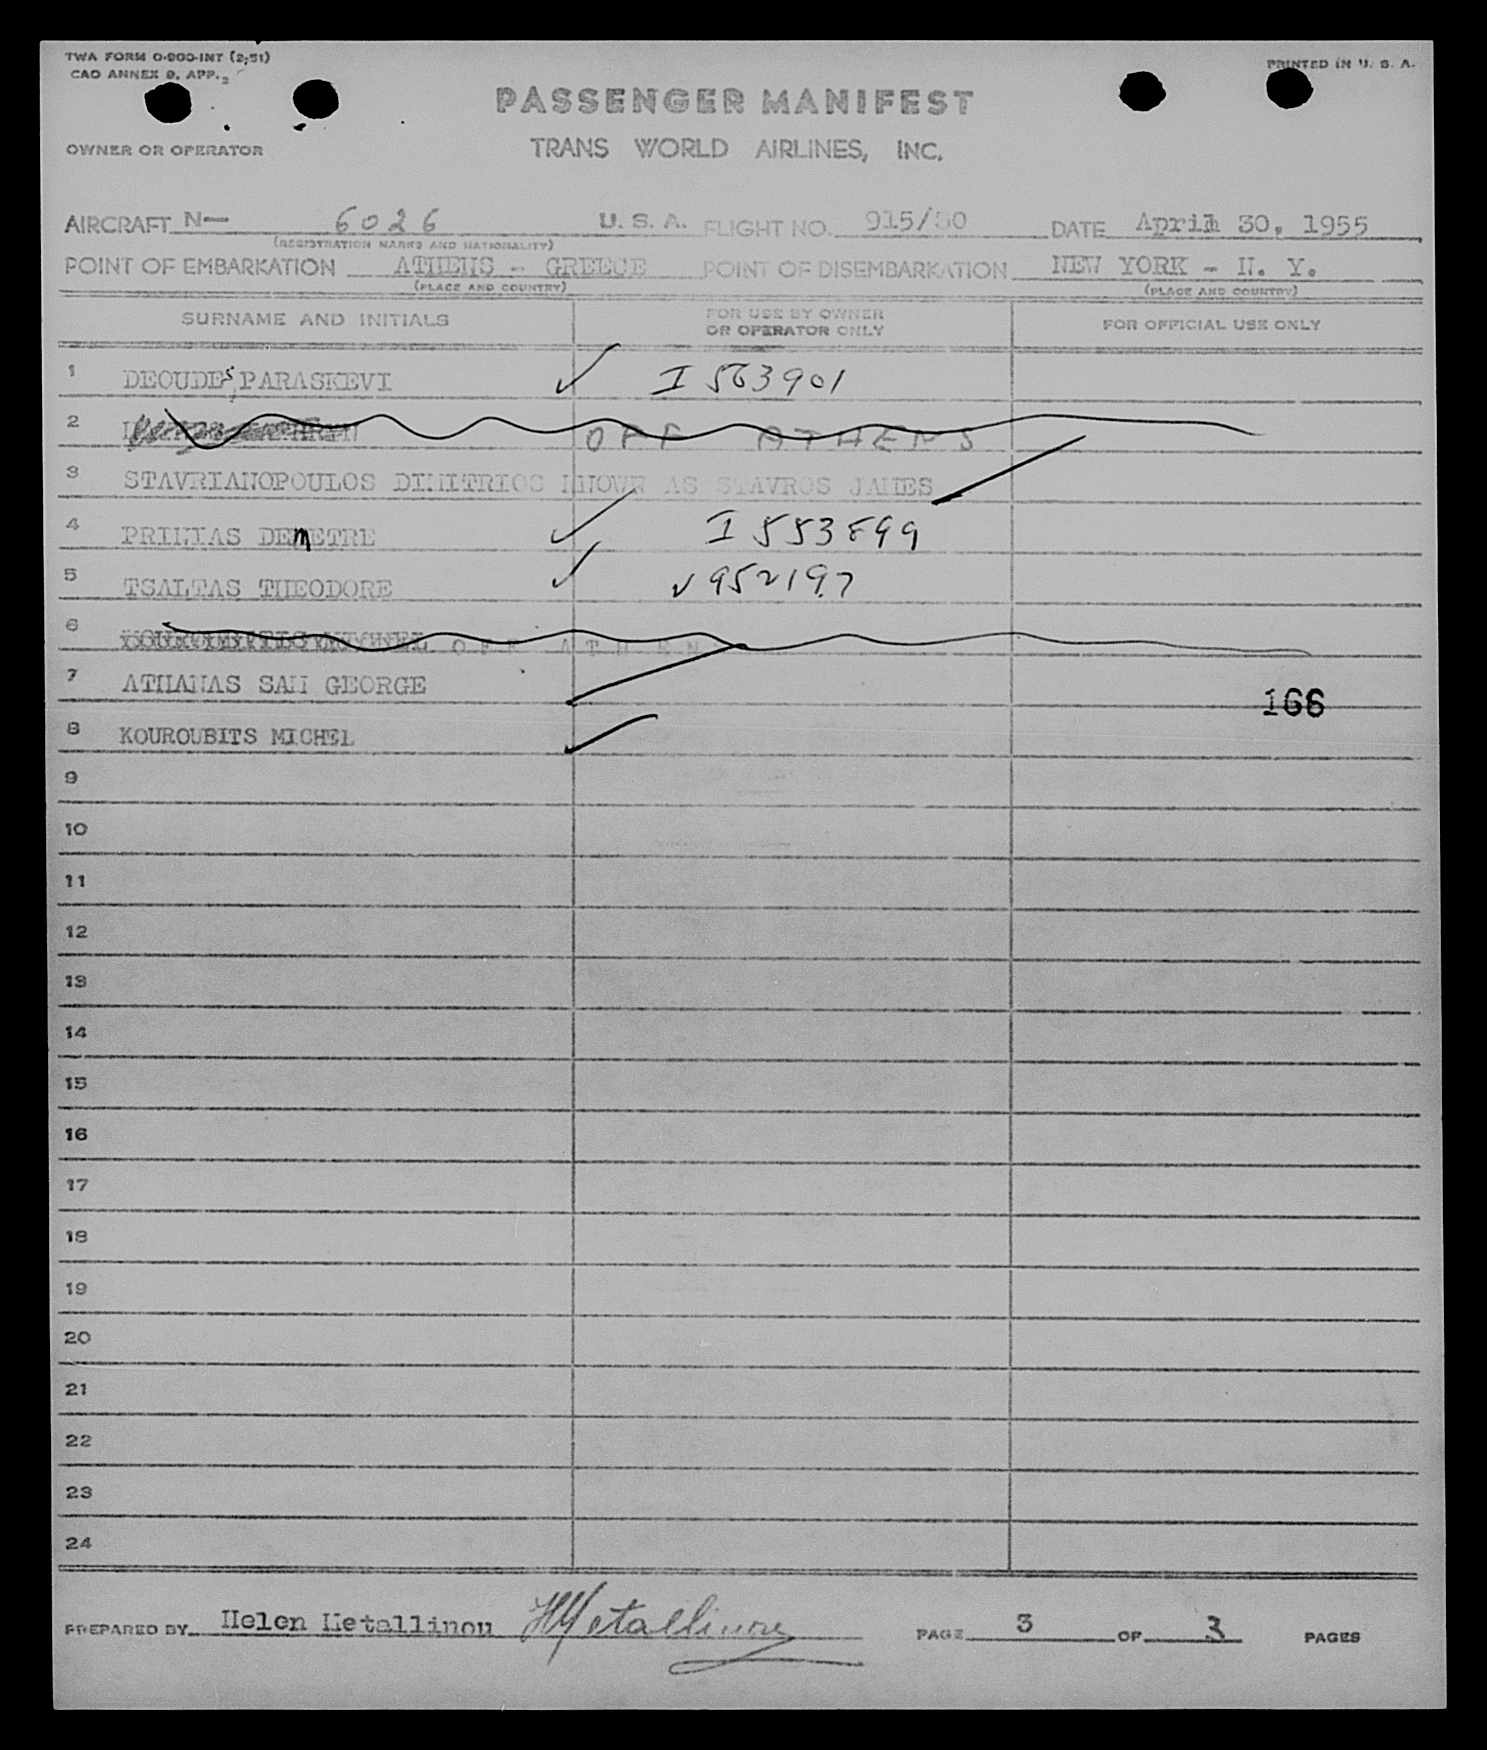 TWA FORM O-900-INT (2-51)
CAO ANNEX 9, APP. 2
PRINTED IN U. S. A.
PASSENGER MANIFEST
OWNER OR OPERATOR
TRANS WORLD AIRLINES, INC.
AIRCRAFT N— 6026 U. S. A. FLIGHT NO. 915/30 DATE April 30, 1955
(REGISTRATION MARKS AND NATIONALITY)
POINT OF EMBARKATION ATHENS - GREECE POINT OF DISEMBARKATION NEW YORK - N. Y.
(PLACE AND COUNTRY) (PLACE AND COUNTRY)
SURNAME AND INITIALS
FOR USE BY OWNER
OR OPERATOR ONLY
FOR OFFICIAL USE ONLY
1 DEOUDES PARASKEVI ✓ I 563901
2 OFF ATHENS
3 STAVRIANOPOULOS DIMITRIOS KNOWN AS STAVROS JAMES
4 PRINIAS DEMETRE ✓ I 553899
5 TSALTAS THEODORE ✓ V 952197
6 OFF ATHEN
7 ATHANAS SAM GEORGE
166
8 KOUROUBITS MICHEL ✓
9
10
11
12
13
14
15
16
17
18
19
20
21
22
23
24
PREPARED BY Helen Metallinou HMetallinou PAGE 3 OF 3 PAGES